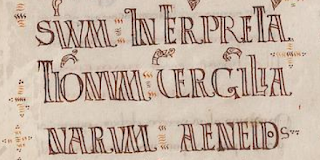 SVVM. INTERPRETA
TIONVM. VERGILIA
NARVM. AENEIDOS